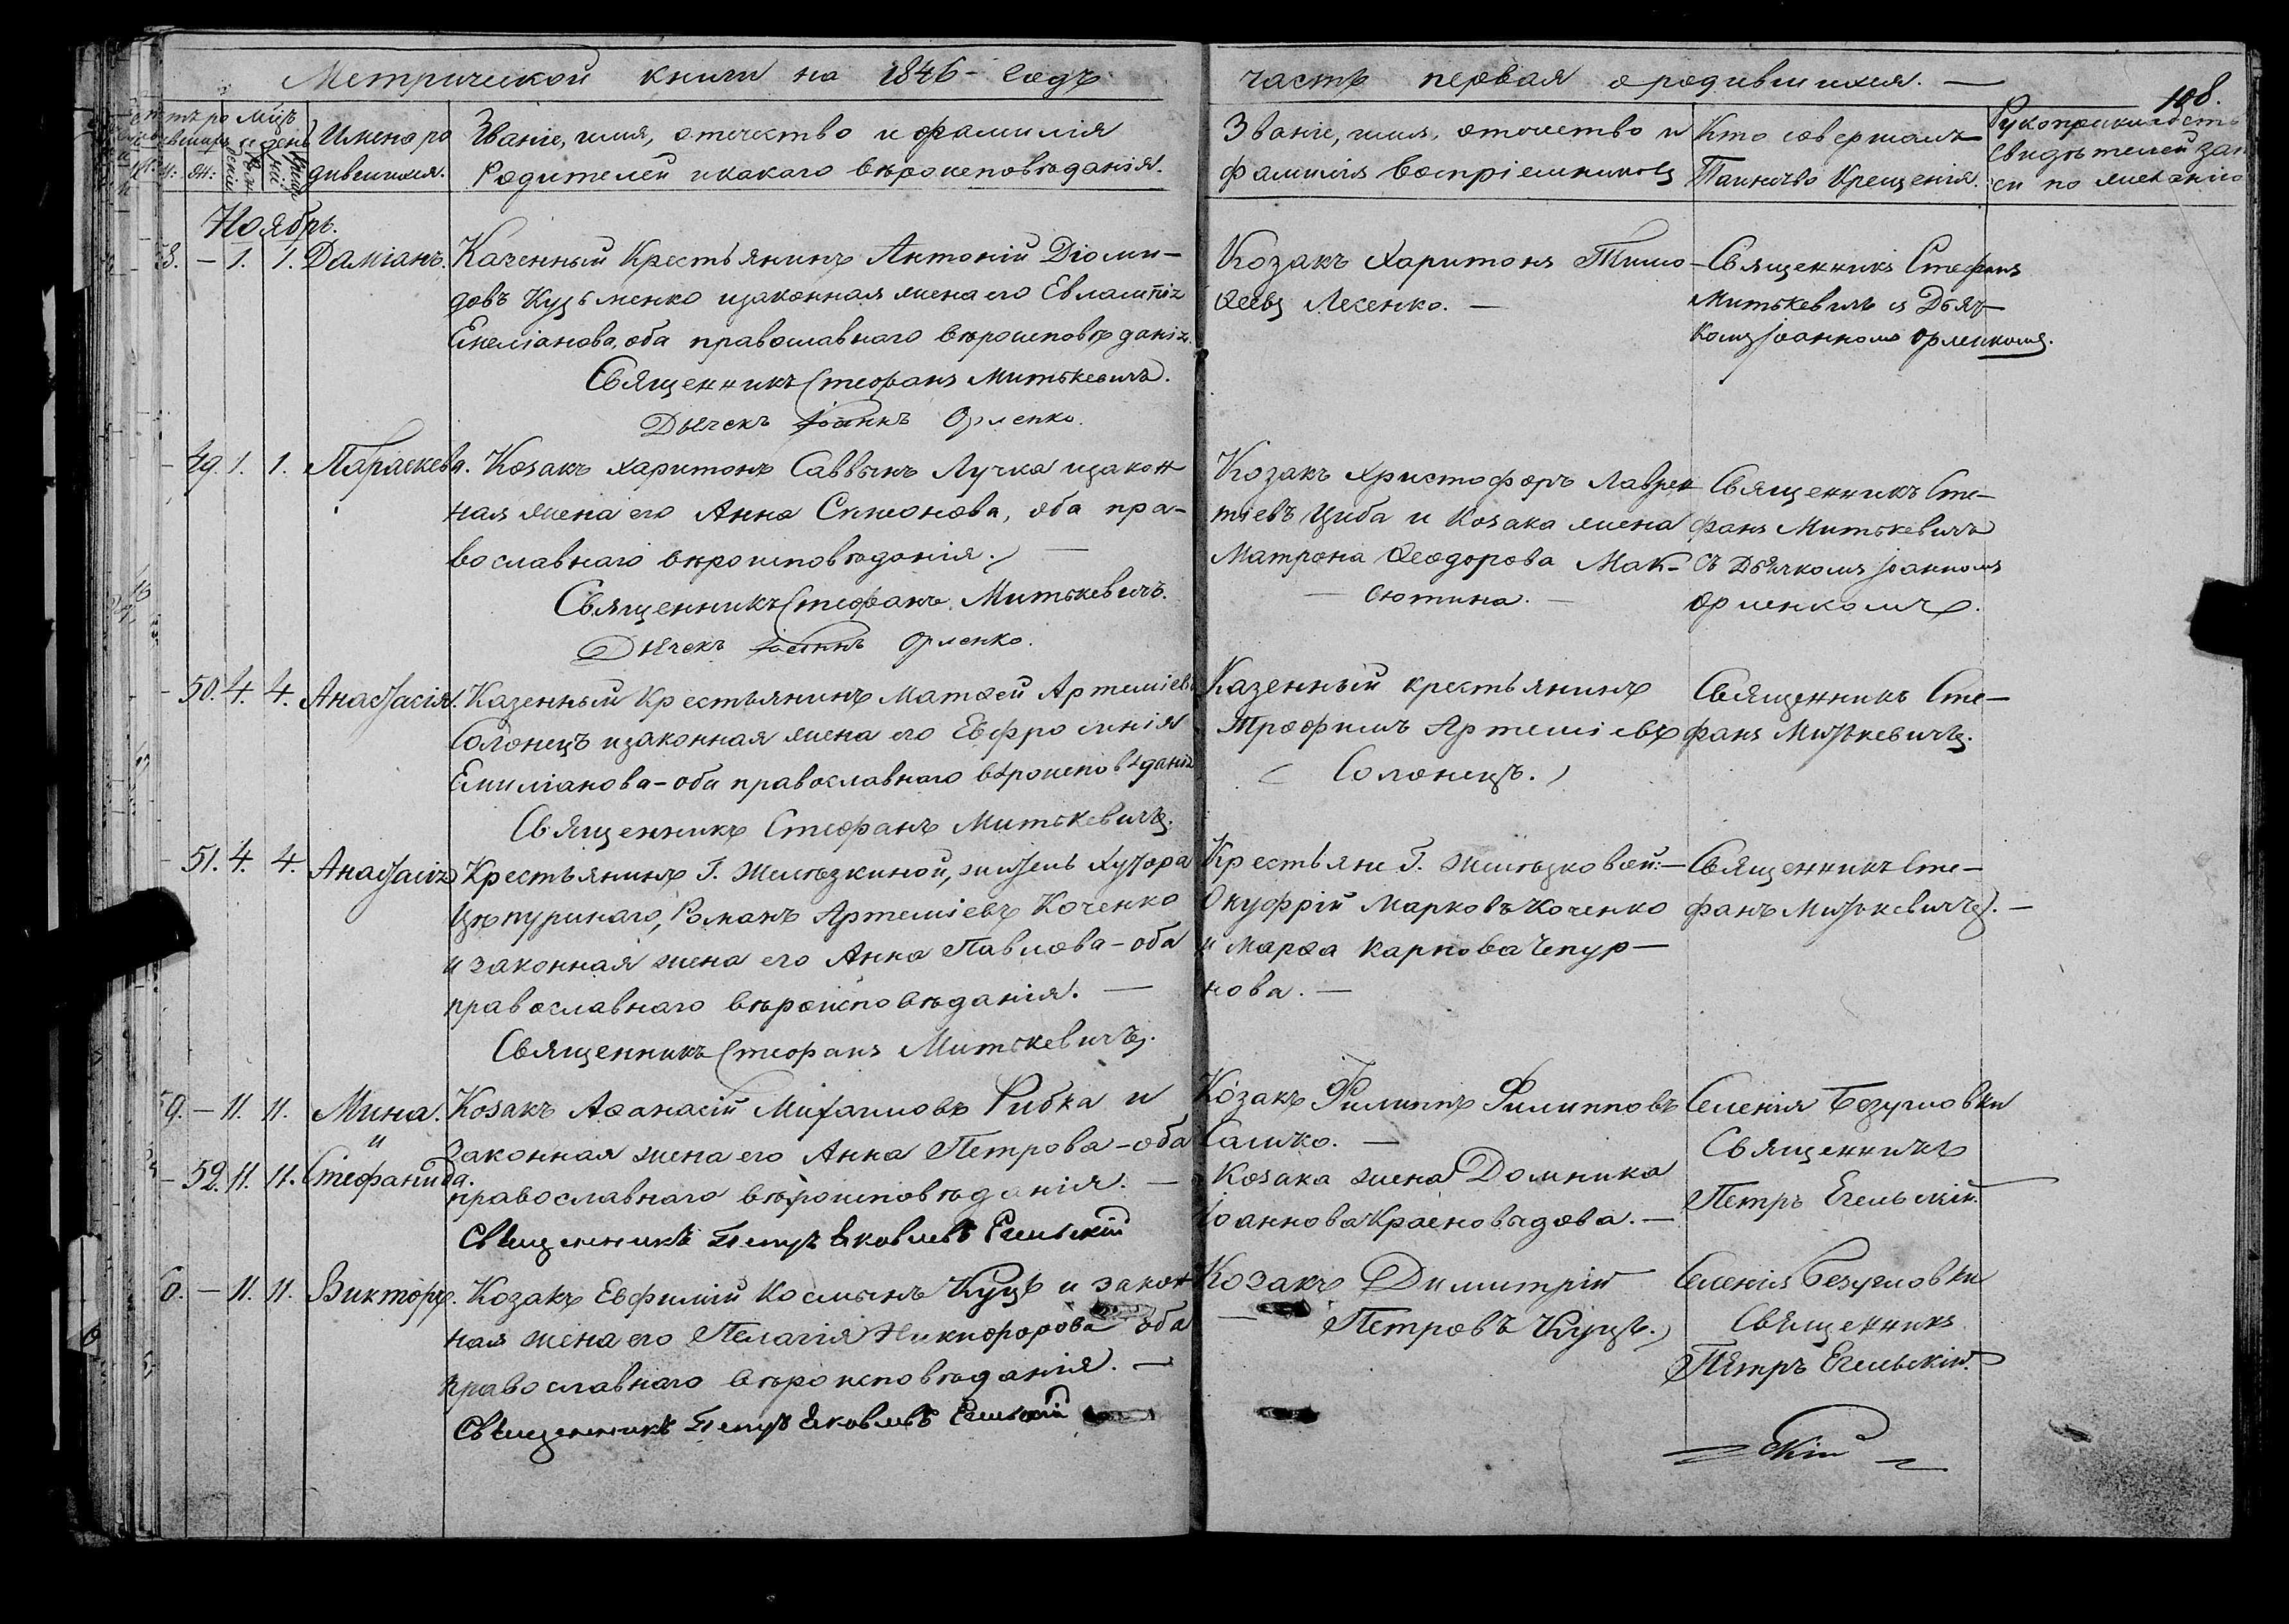 Метрической книги на 1846 годъ
часть первая о родившихся. —
108.
Имена ро
дившихся.
Званіе, имя, отечество и фамилія
Родителей и какого вѣроисповѣданія.
Званіе, имя, отчество и
фамилія Воспріемниковъ
Кто совершалъ
Таинство Крещенія.
Рукоприкладств
свидѣтелей зап
си по желанію
Ноябрь.
8. — 1. 1. Даміанъ.
Казенный Крестьянинъ Антоній Діоми-
довъ Кузьменко и законная жена его Евлампія
Емеліанова, оба православнаго вѣроисповѣданія.
Священникъ Стефанъ Митькевичъ.
Дьячекъ Іоаннъ Орленко.
Козакъ Харитонъ Тимо-
ѳеевъ Лесенко. —
Священникъ Стефанъ
Митькевичъ съ Дьяч-
комъ Іоанномъ Орленкомъ.
49. 1. 1. Параскева.
Козакъ Харитонъ Саввинъ Лучка и закон
ная жена его Анна Симеонова, оба пра-
вославнаго вѣроисповѣданія. —
Священникъ Стефанъ Митькевичъ.
Дьячекъ Іоаннъ Орленко.
Козакъ Христофоръ Лаврен
тіевъ Циба и Козака жена
Матрона Ѳеодорова Мак-
— сютина. —
Священникъ Сте-
фанъ Митькевичъ
съ Дьячкомъ Іоанномъ
Орленкомъ.
50. 4. 4. Анастасія.
Казенный Крестьянинъ Матѳей Артеміевъ
Солонецъ и законная жена его Евфросинія
Емиліанова - оба православнаго вѣроисповѣданія
Священникъ Стефанъ Митькевичъ.
Казенный крестьянинъ
Трофимъ Артеміевъ
Солонецъ.
Священникъ Сте-
фанъ Митькевичъ.
51. 4. 4. Анастасія
Крестьянинъ Г. Желѣзкиной, житель Хутора
Чепуринаго, Романъ Артеміевъ Коченко
и законная жена его Анна Павлова - оба
православнаго вѣроисповѣданія. —
Священникъ Стефанъ Митькевичъ.
Крестьяне Г. Желѣзковой: —
Онуфрій Марковъ Коченко
и Марѳа Карпова Чепур-
нова. —
Священникъ Сте-
фанъ Митькевичъ. —
59. — 11. 11. Мина.
и
— 52. 11. 11. Стефанида.
Козакъ Аѳанасій Михаиловъ Рибка и
законная жена его Анна Петрова - оба
православнаго вѣроисповѣданія. —
Священникъ Петръ Яковлевъ Егельскій
Козакъ Филиппъ Филипповъ
Сашко. —
Козака жена Домника
Іоаннова Красновыдова. —
Селенія Безугловки
Священникъ
Петръ Егельскій.
6. — 11. 11. Викторъ.
Козакъ Евфимій Косминъ Куцъ и закон
ная жена его Пелагія Никифорова оба
православнаго вѣроисповѣданія. —
Священникъ Петръ Яковлевъ Егельскій
Козакъ Димитрій
— Петровъ Куцъ.
Селенія Безугловки
Священникъ
Петръ Егельскій.
скій